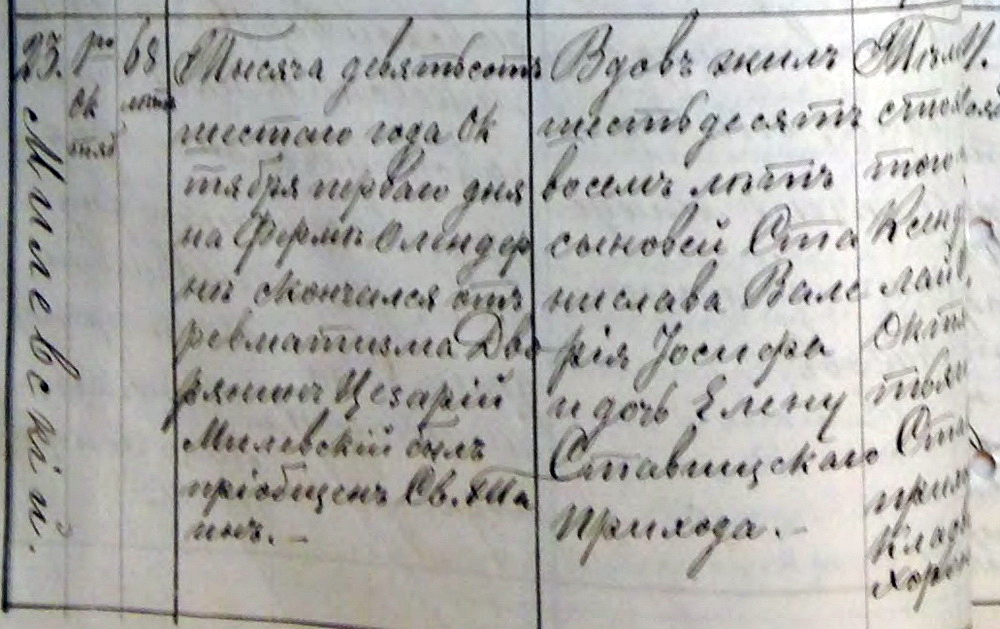 23.
Милевскій.
1го
Ок
тяб
68
лѣтъ
Тысяча девятьсотъ
шестого года Ок
тября перваго дня
на Фермѣ Олендер
нѣ скончился отъ
ревматизма Дво
рянинъ Цезарій
Милевскій былъ
пріобщенъ Св. Та
инъ. –
Вдовъ жилъ
шестьдесятъ
восемъ лѣтъ
сыновей Ста
нислава Вале
рія Іосифа
и дочь Елену
Ставищскаго
прихода. –
тою
Ксенд
Октя
Ста
прих
Кладб